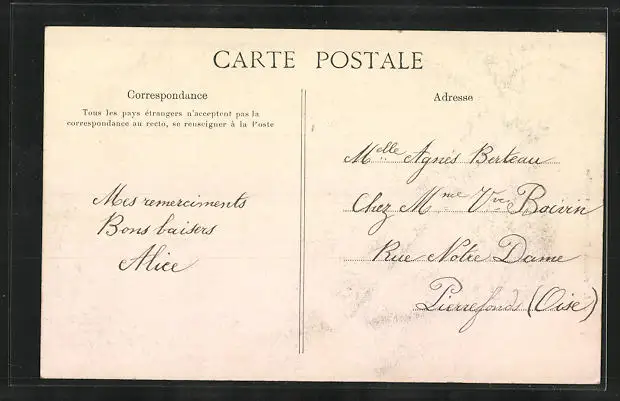 CARTE POSTALE
Correspondance
Tous les pays étrangers n'acceptent pas la
correspondance au recto, se renseigner à la Poste
Mes remerciments
Bons baisers
Alice
Adresse
Melle Agnès Berteau
Chez Mme Vve Boivin
Rue Notre Dame
Pierrefonds (Oise)